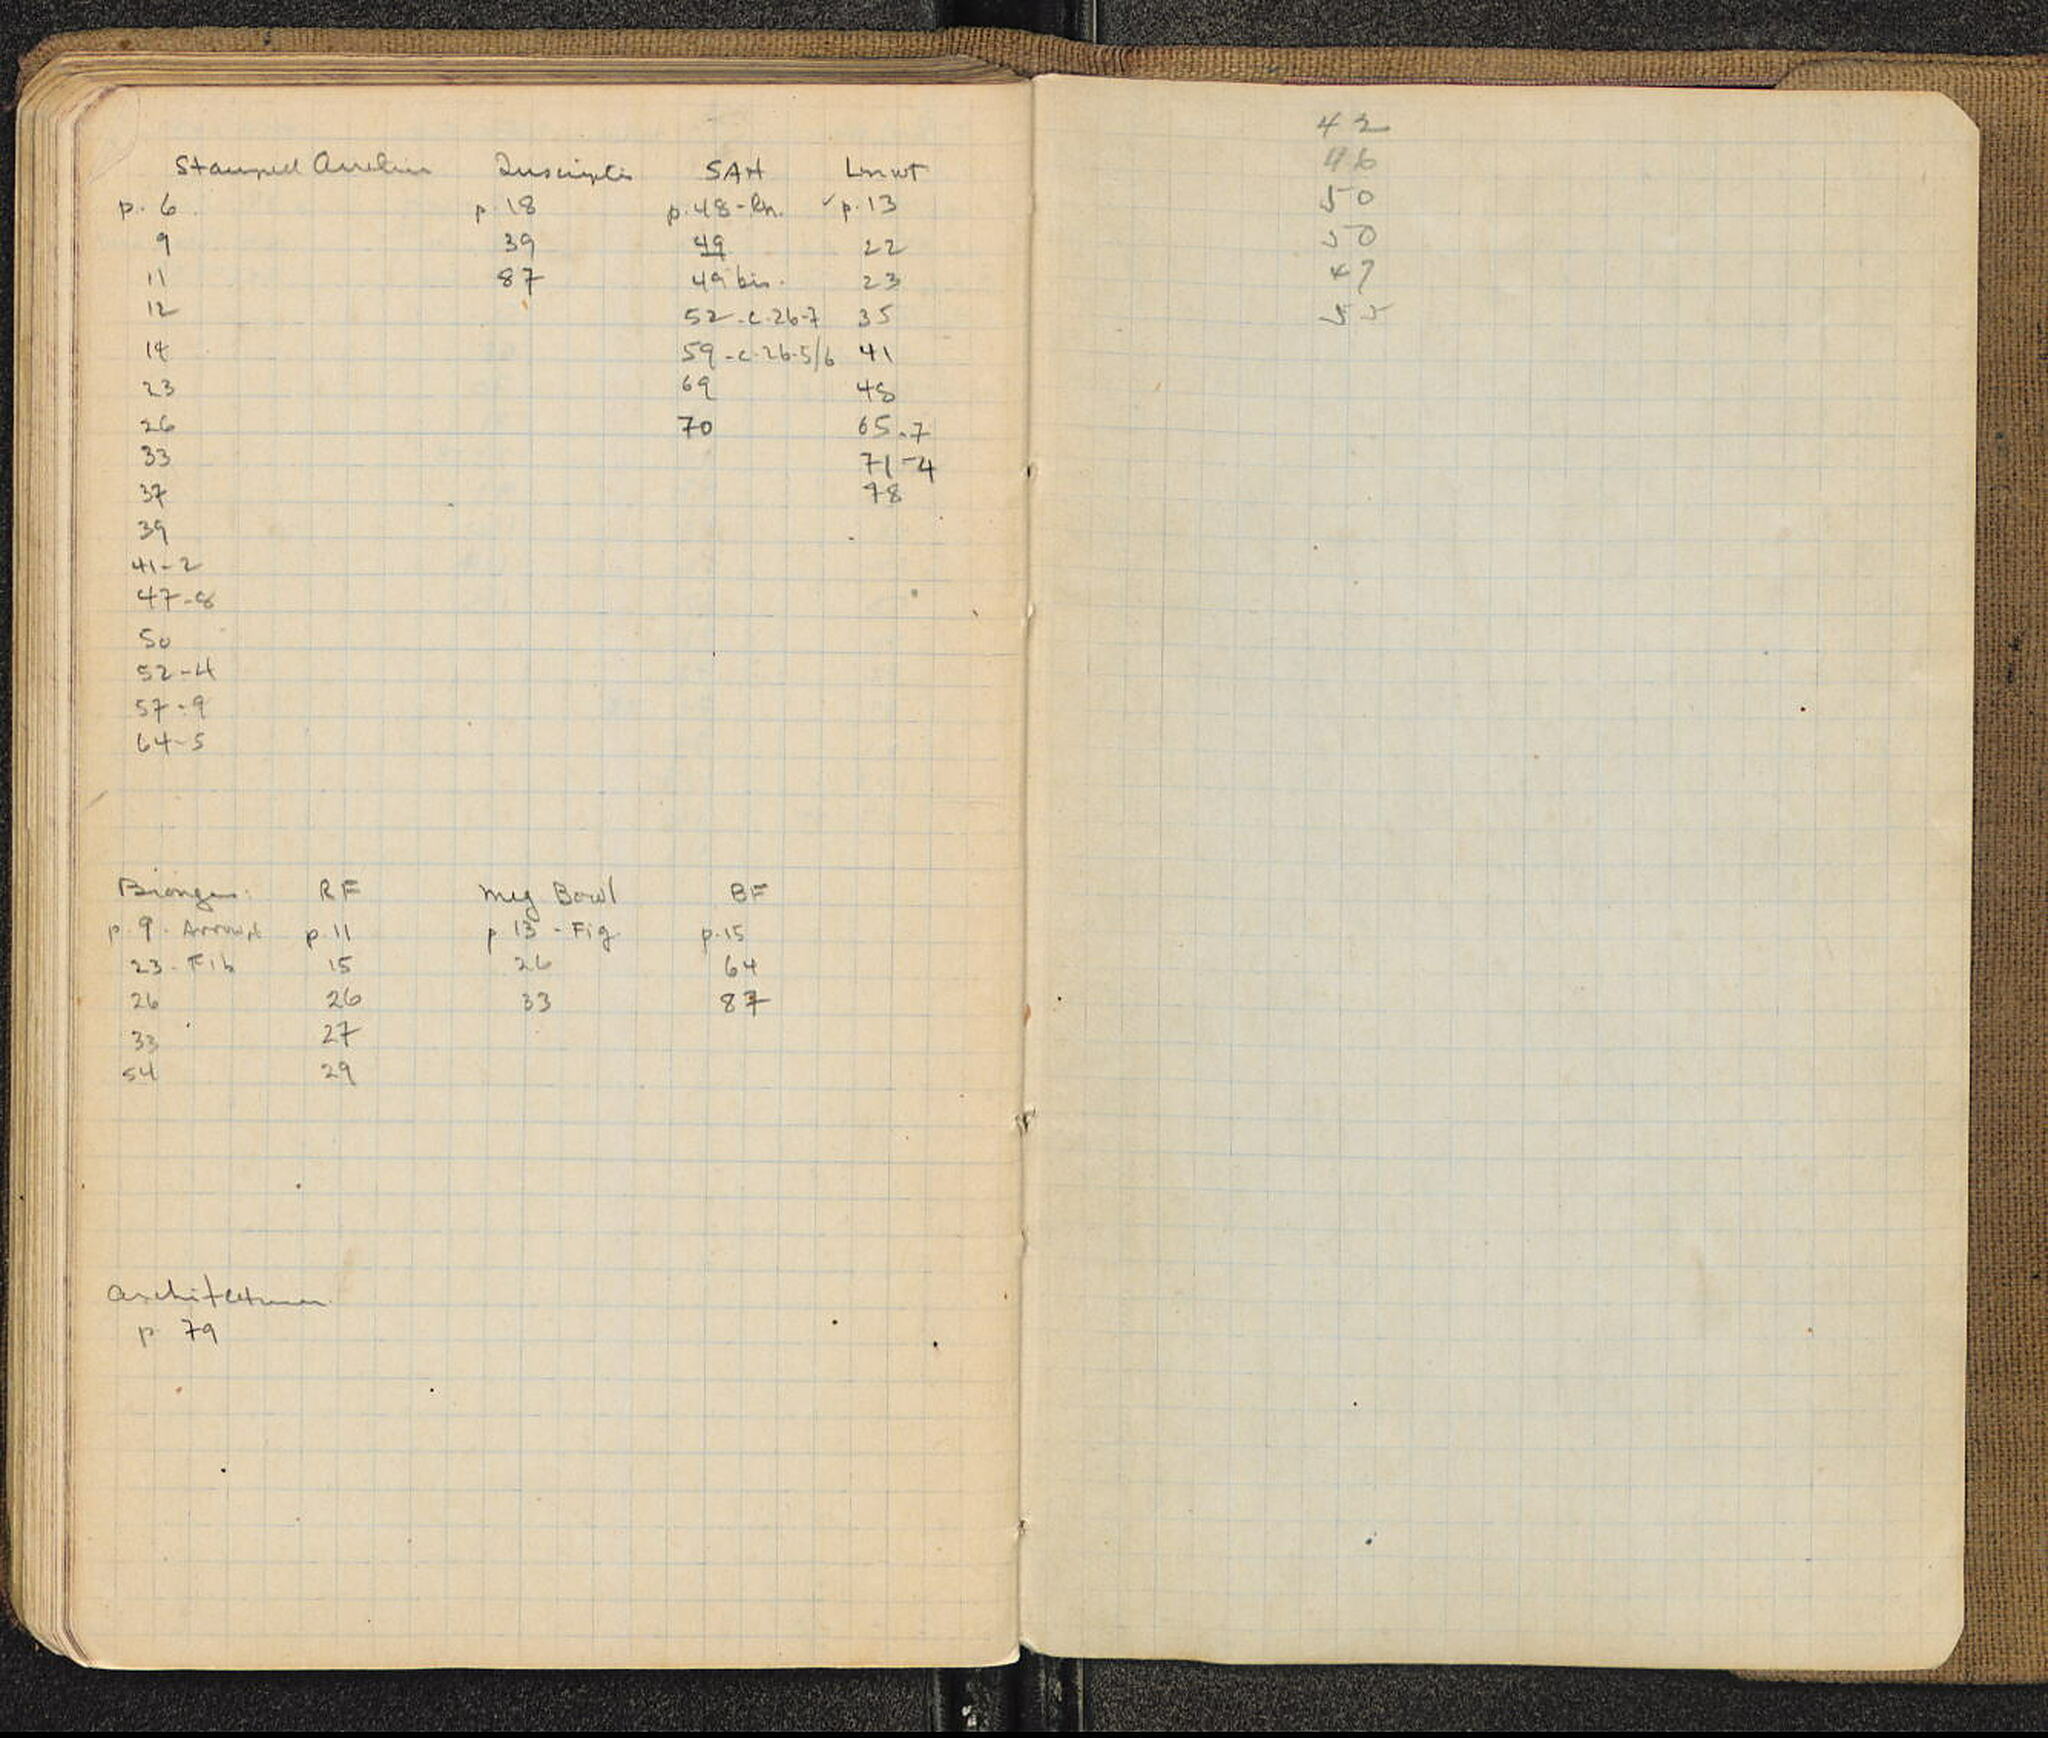 Stamped Arretine Inscriptio SAH Lmwt
p. 6 p. 18 p. 48 - Rh. ✓p. 13
9 39 49 22
11 87 49 bis. 23
12 52 - c. 26-7 35
14 59 - c. 26-5/6 41
23 69 48
26 70 65-7
33 71-4
37 78
39
41-2
47-8
50
52-4
57-9
64-5
Bronzes. RF Meg Bowl BF
p. 9 - Arrowpt p. 11 p 13 - Fig. p. 15
23 - Fib 15 26 64
26 26 33 87
33 27
54 29
Architecture
p. 79
42
46
50
50
47
55